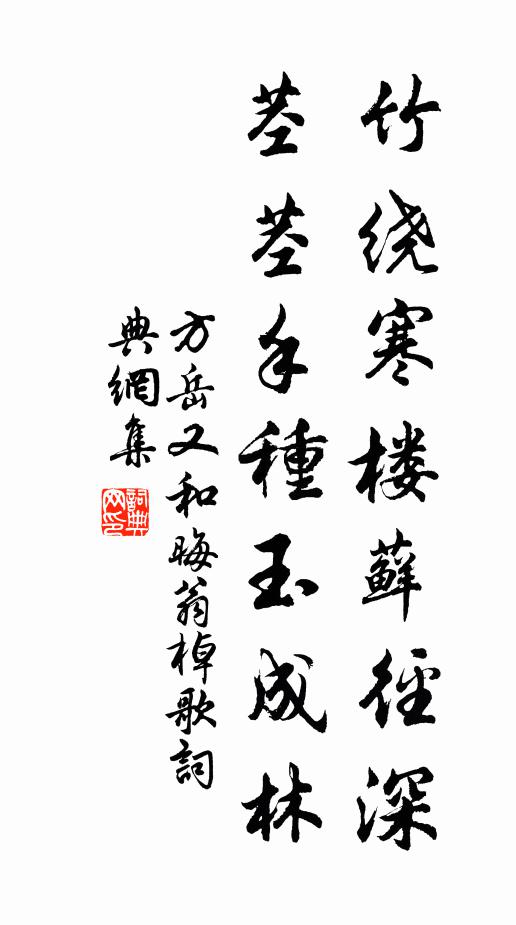 竹绕寒楼藓径深
茎茎手種玉成林
方岳又和晦翁棹歌詞
典網集
詞典网印